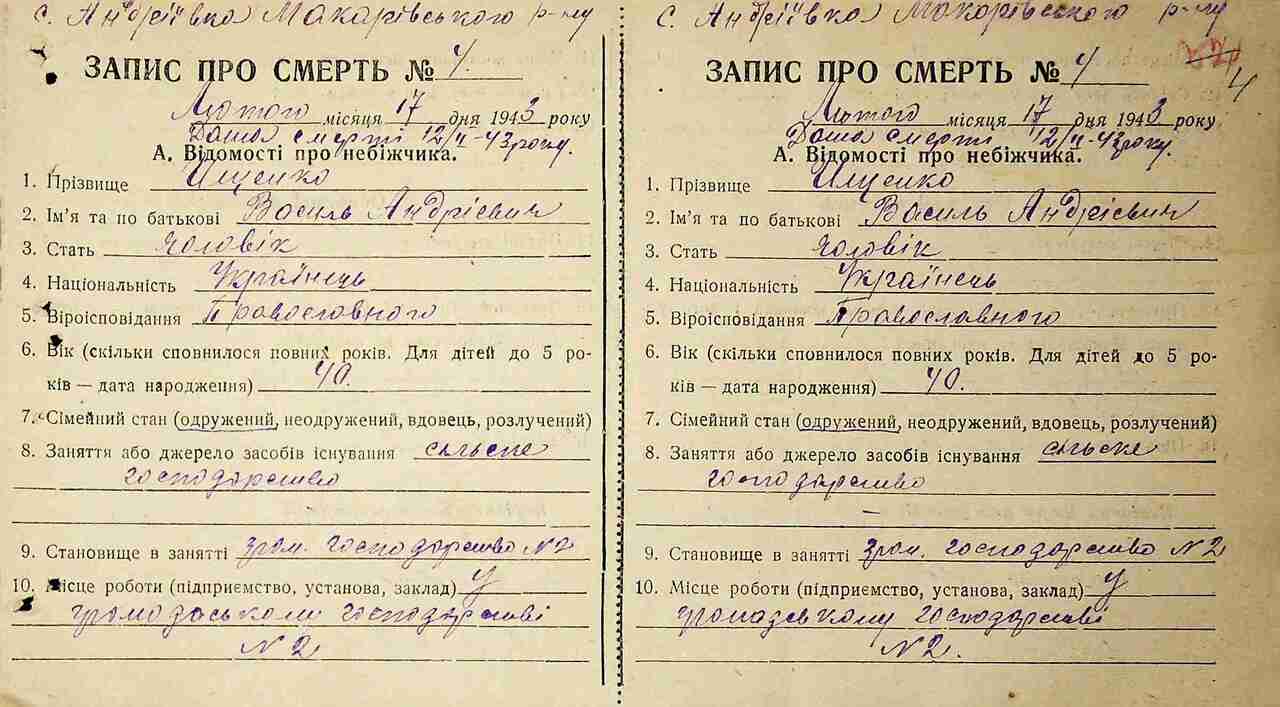 с. Андріївка Макарівського р-ну
ЗАПИС ПРО СМЕРТЬ № 4.
Лютого місяця 17 дня 1943 року
Дата смерті 12/II-43 року.
А. Відомості про небіжчика.
1. Прізвище Іщенко
2. Ім'я та по батькові Василь Андрієвич
3. Стать чоловік
4. Національність Українець
5. Віроісповідання Православного
6. Вік (скільки сповнилося повних років. Для дітей до 5 ро-
ків — дата народження) 40.
7. Сімейний стан (одружений, неодружений, вдовець, розлучений)
8. Заняття або джерело засобів існування сільске
господарство
9. Становище в занятті гром. господарство №2
10. Місце роботи (підприємство, установа, заклад) у
громадському господарстві
№2
с. Андріївка Макарівського р-ну
ЗАПИС ПРО СМЕРТЬ № 4
4
Лютого місяця 17 дня 1943 року
Дата смерті 12/II-43 року.
А. Відомості про небіжчика.
1. Прізвище Іщенко
2. Ім'я та по батькові Василь Андрієвич
3. Стать чоловік
4. Національність Українець
5. Віроісповідання Православного
6. Вік (скільки сповнилося повних років. Для дітей до 5 ро-
ків — дата народження) 40.
7. Сімейний стан (одружений, неодружений, вдовець, розлучений)
8. Заняття або джерело засобів існування сільске
господарство
—
9. Становище в занятті гром. господарство №2
10. Місце роботи (підприємство, установа, заклад) у
громадському господарстві
№2.